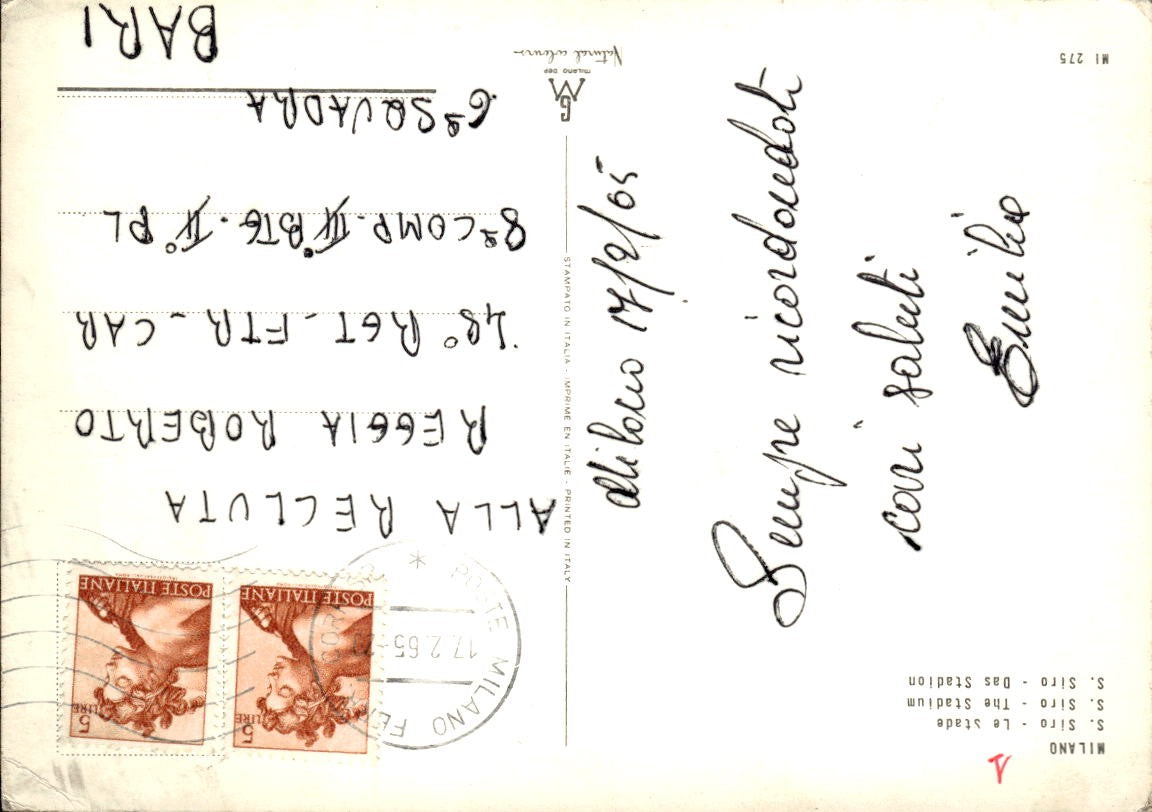 MILANO
S. Siro - Le Stade
S. Siro - The Stadium
S. Siro - Das Stadion
MI 275
Milano 17/2/65
Sempre ricordandoti
cari saluti
Emilio
STAMPATO IN ITALIA - IMPRIME EN ITALIE - PRINTED IN ITALY
MILANO DEP
Natural colours
POSTE ITALIANE
5 LIRE
POSTE ITALIANE
5 LIRE
POSTE MILANO
17.2.65
ALLA RECLUTA
REGGIA ROBERTO
48° RGT - FTR - CAR
8ª COMP. III° BTG. II° PL
6ª SQUADRA
BARI